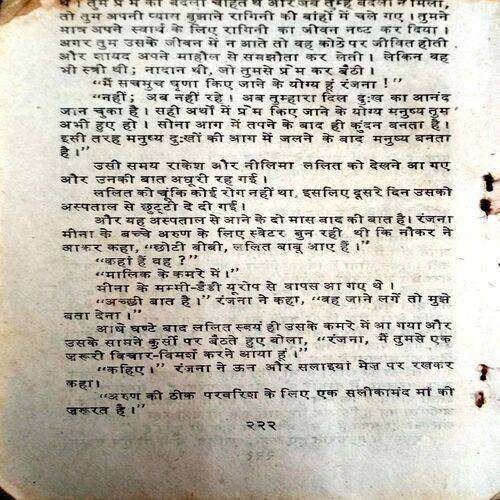 थे। तुम प्रेम का बदला चाहते थे और जब तुम्हें बदला न मिला,
तो तुम अपनी प्यास बुझाने रागिनी की बांहों में चले गए। तुमने
मात्र अपने स्वार्थ के लिए रागिनी का जीवन नष्ट कर दिया।
अगर तुम उसके जीवन में न आते तो वह कोठे पर जीवित होती
और शायद अपने माहौल से समझौता कर लेती। लेकिन वह
भी स्त्री थी; नादान थी, जो तुमसे प्रेम कर बैठी।
“मैं सचमुच घृणा किए जाने के योग्य हूं रंजना!”
“नहीं; अब नहीं रहे। अब तुम्हारा दिल दुःख का आनंद
जान चुका है। सही अर्थों में प्रेम किए जाने के योग्य मनुष्य तुम
अभी हुए हो। सोना आग में तपने के बाद ही कुंदन बनता है।
इसी तरह मनुष्य दुःखों की आग में जलने के बाद मनुष्य बनता
है।”
उसी समय राकेश और नीलिमा ललित को देखने आ गए
और उनकी बात अधूरी रह गई।
ललित को चूंकि कोई रोग नहीं था, इसलिए दूसरे दिन उसको
अस्पताल से छुट्टी दे दी गई।
और यह अस्पताल से आने के दो मास बाद की बात है। रंजना
मीना के बच्चे अरुण के लिए स्वेटर बुन रही थी कि नौकर ने
आकर कहा, “छोटी बीबी, ललित बाबू आए हैं।”
“कहां हैं वह?”
“मालिक के कमरे में।”
मीना के मम्मी-डैडी यूरोप से वापस आ गए थे।
“अच्छी बात है।” रंजना ने कहा, “वह जाने लगें तो मुझे
बता देना।”
आधे घण्टे बाद ललित स्वयं ही उसके कमरे में आ गया और
उसके सामने कुर्सी पर बैठते हुए बोला, “रंजना, मैं तुमसे एक
ज़रूरी विचार-विमर्श करने आया हूं।”
“कहिए।” रंजना ने ऊन और सलाइयां मेज़ पर रखकर
कहा।
“अरुण की ठीक परवरिश के लिए एक सलीकामंद मां की
ज़रूरत है।”
२२२